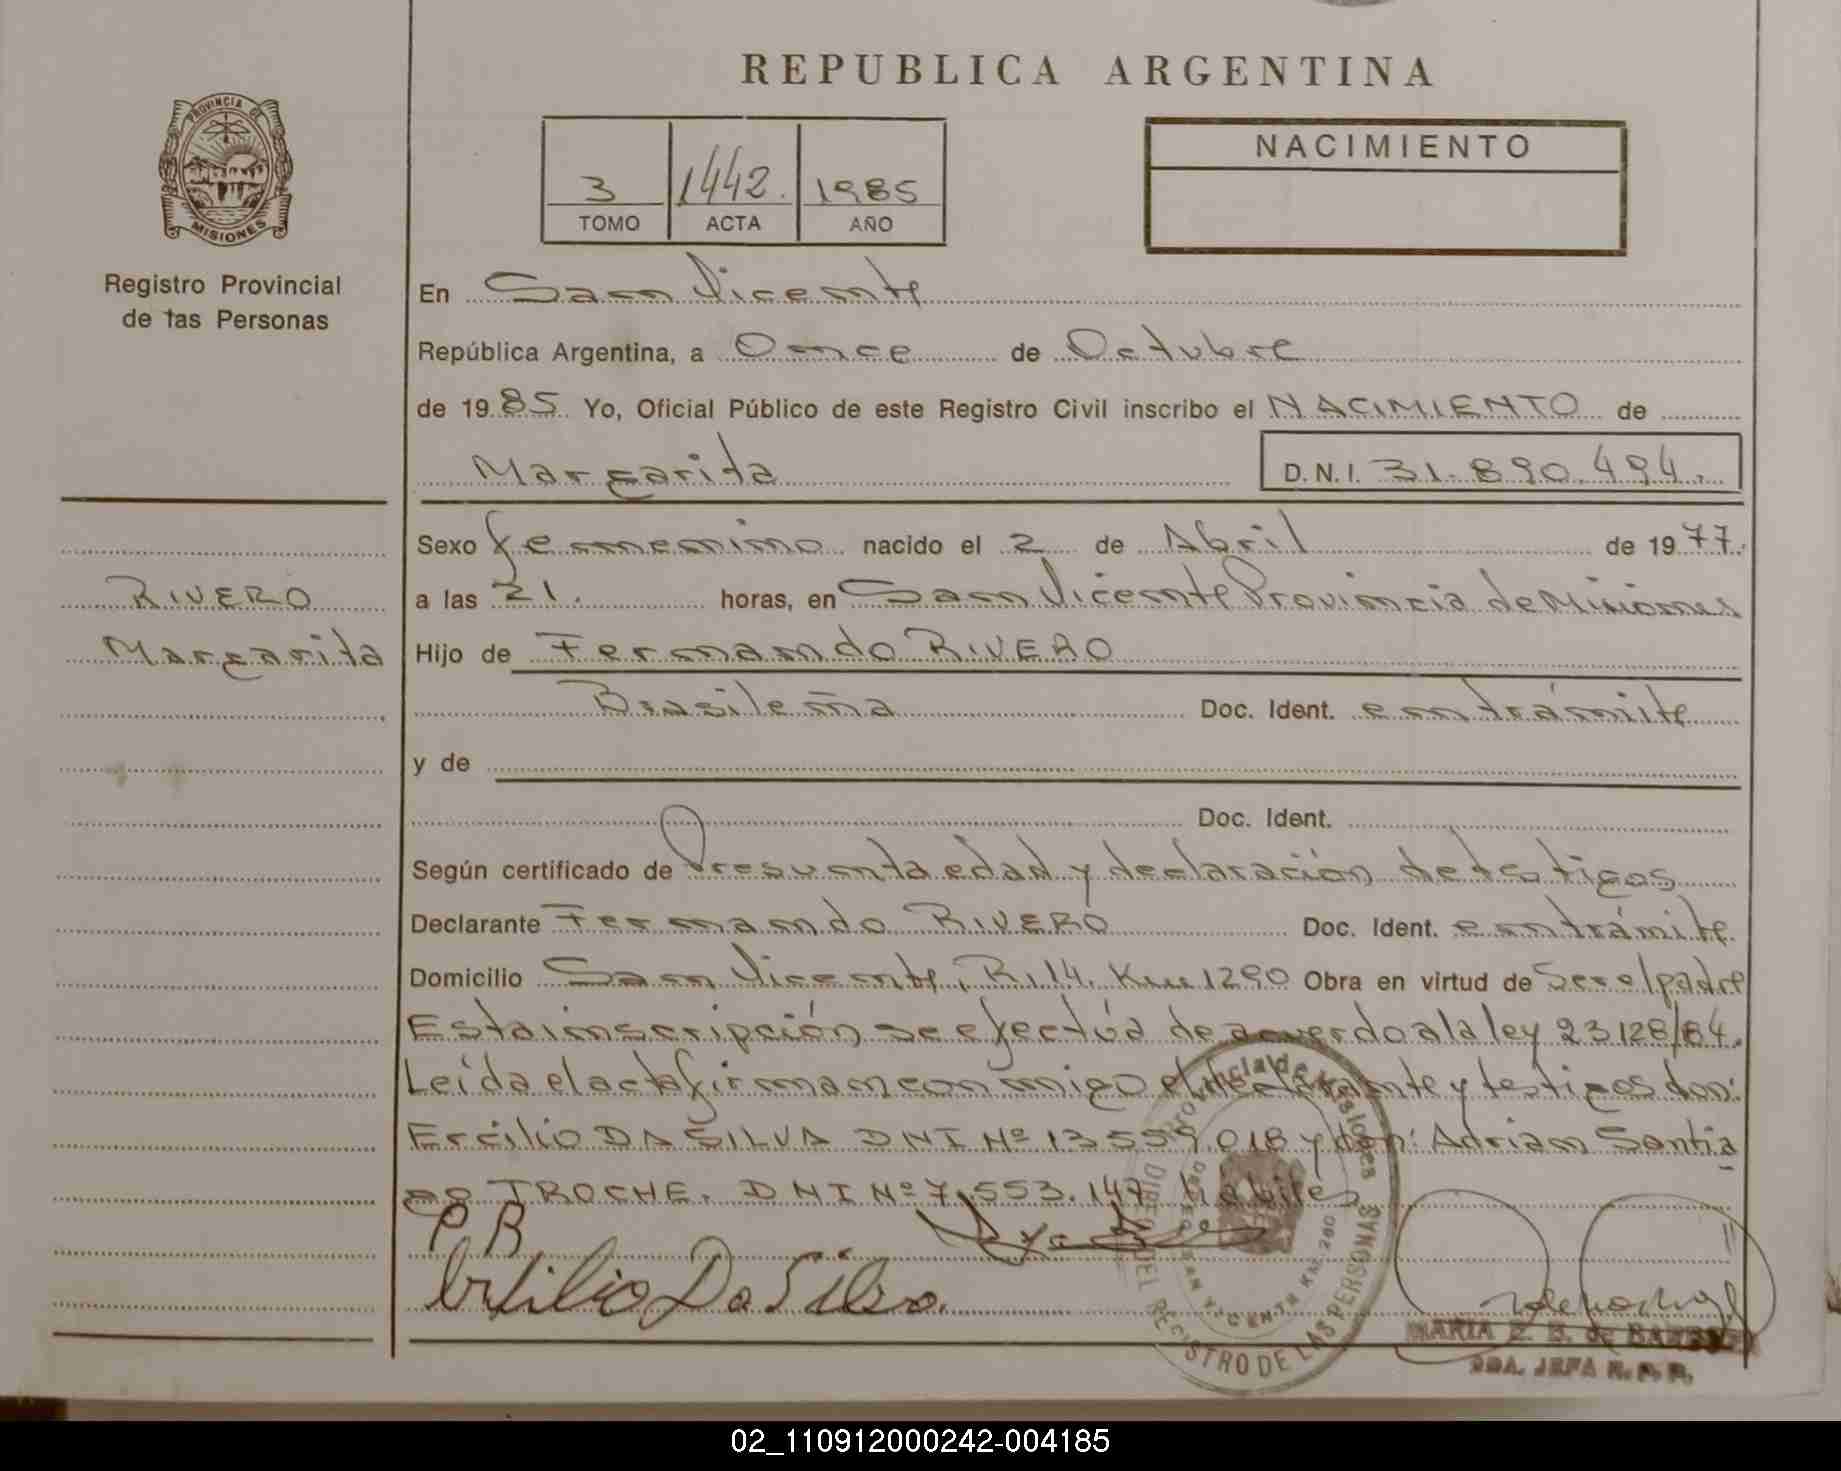 REPUBLICA ARGENTINA
PROVINCIA DE
MISIONES
Registro Provincial
de las Personas
3 1442. 1985
TOMO ACTA AÑO
NACIMIENTO
En San Vicente
República Argentina, a Once de Octubre
de 1985 Yo, Oficial Público de este Registro Civil inscribo el NACIMIENTO de
Margarita D.N.I. 31.890.494.
Sexo femenino nacido el 2 de Abril de 1977.
RIVERO
a las 21. horas, en San Vicente Provincia de Misiones
Margarita
Hijo de Fernando RIVERO
Brasileña Doc. Ident. en trámite
y de
Doc. Ident.
Según certificado de Presunta edad y declaración de testigos
Declarante Fernando RIVERO Doc. Ident. en trámite.
Domicilio San Vicente, R. 14. Km 1290 Obra en virtud de Ser el padre
Esta inscripción se efectúa de acuerdo a la ley 23128/84.
Leída el acta firman conmigo el declarante y testigos don:
Ercilio DA SILVA DNI Nº 13.559.018 y don: Adrian Santia
go TROCHE. DNI Nº 7.553.147 hábiles
P B
Ersilio Da Silva.
Provincial de Misiones
DEL REGISTRO DE LAS PERSONAS
SAN VICENTE KM. 280
MARIA E. B. de
2DA. JEFA R. P. P.
02_110912000242-004185